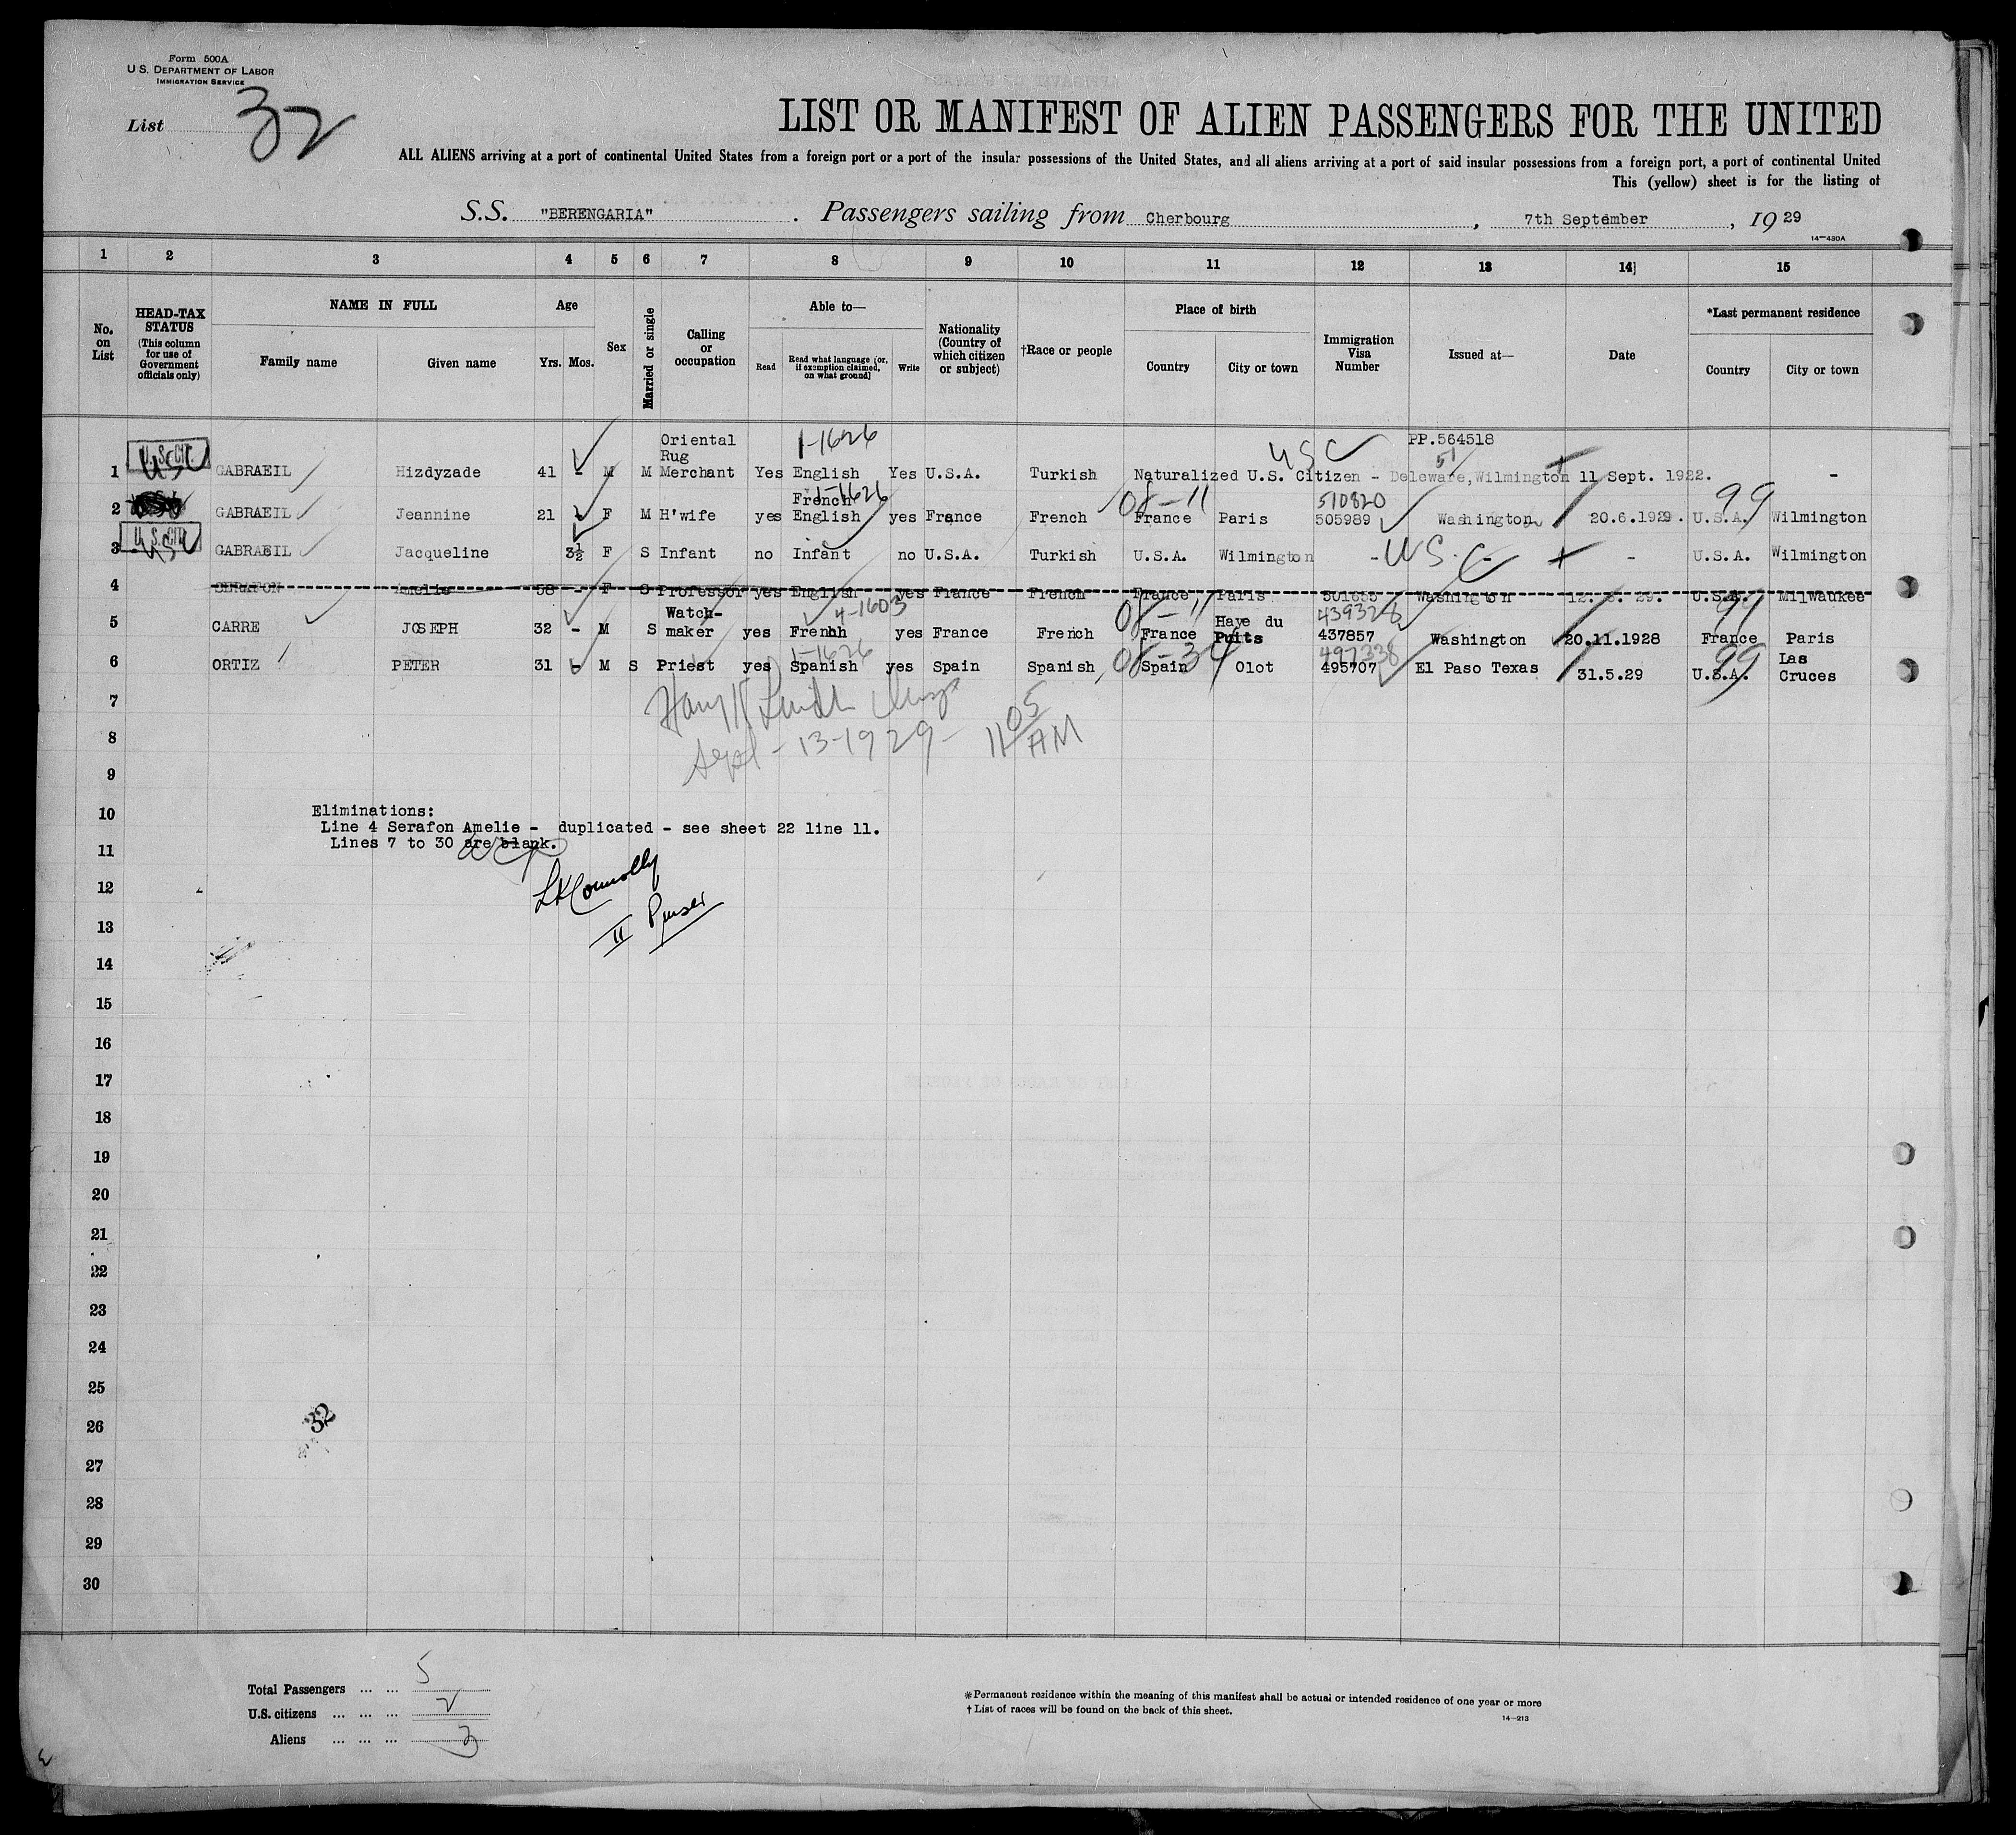 Form 500A
U.S. DEPARTMENT OF LABOR
IMMIGRATION SERVICE
List 32
LIST OR MANIFEST OF ALIEN PASSENGERS FOR THE UNITED
ALL ALIENS arriving at a port of continental United States from a foreign port or a port of the insular possessions of the United States, and all aliens arriving at a port of said insular possessions from a foreign port, a port of continental United
This (yellow) sheet is for the listing of
S.S. "BERENGARIA" . Passengers sailing from Cherbourg , 7th September , 19 29
14—430A
1 2 3 4 5 6 7 8 9 10 11 12 13 14 15
No. on List
HEAD-TAX STATUS (This column for use of Government officials only)
NAME IN FULL
Family name
Given name
Age
Yrs. Mos.
Sex
Married or single
Calling or occupation
Able to—
Read
Read what language (or, if exemption claimed, on what ground)
Write
Nationality (Country of which citizen or subject)
†Race or people
Place of birth
Country
City or town
Immigration Visa Number
Issued at—
Date
*Last permanent residence
Country
City or town
1-1626
USC
PP.564518
51
1 U.S.CIT. USC GABRAEIL Hizdyzade 41 - M M Oriental Rug Merchant Yes English Yes U.S.A. Turkish Naturalized U.S. Citizen - Deleware, Wilmington 11 Sept. 1922. -
1-1626
08-11
510820
99
2 GABRAEIL Jeannine 21 - F M H'wife yes French English yes France French France Paris 505989 Washington 20.6.1929. U.S.A. Wilmington
3 U.S.CIT. USC GABRAEIL Jacqueline 3½ F S Infant no Infant no U.S.A. Turkish U.S.A. Wilmington - USC - - U.S.A. Wilmington
4 SERAFON Amelie 58 - F S Professor yes English yes France French France Paris Washington U.S.A. Milwaukee
4-1603
08-11
439328
99
5 CARRE JOSEPH 32 - M S Watch-maker yes French yes France French France Haye du Puits 437857 Washington 20.11.1928 France Paris
1-1626
08-34
497338
99
6 ORTIZ PETER 31 - M S Priest yes Spanish yes Spain Spanish Spain Olot 495707 El Paso Texas 31.5.29 U.S.A. Las Cruces
7
8 Sept-13-1929- 11 05 AM
9
10 Eliminations:
Line 4 Serafon Amelie - duplicated - see sheet 22 line 11.
11 Lines 7 to 30 are blank.
12 LKConnolly
13 II Purser
14
15
16
17
18
19
20
21
22
23
24
25
26 32
27
28
29
30
Total Passengers ... ... 5
U.S. citizens ... ... ... 2
Aliens ... ... ... 3
*Permanent residence within the meaning of this manifest shall be actual or intended residence of one year or more
† List of races will be found on the back of this sheet.
14—213